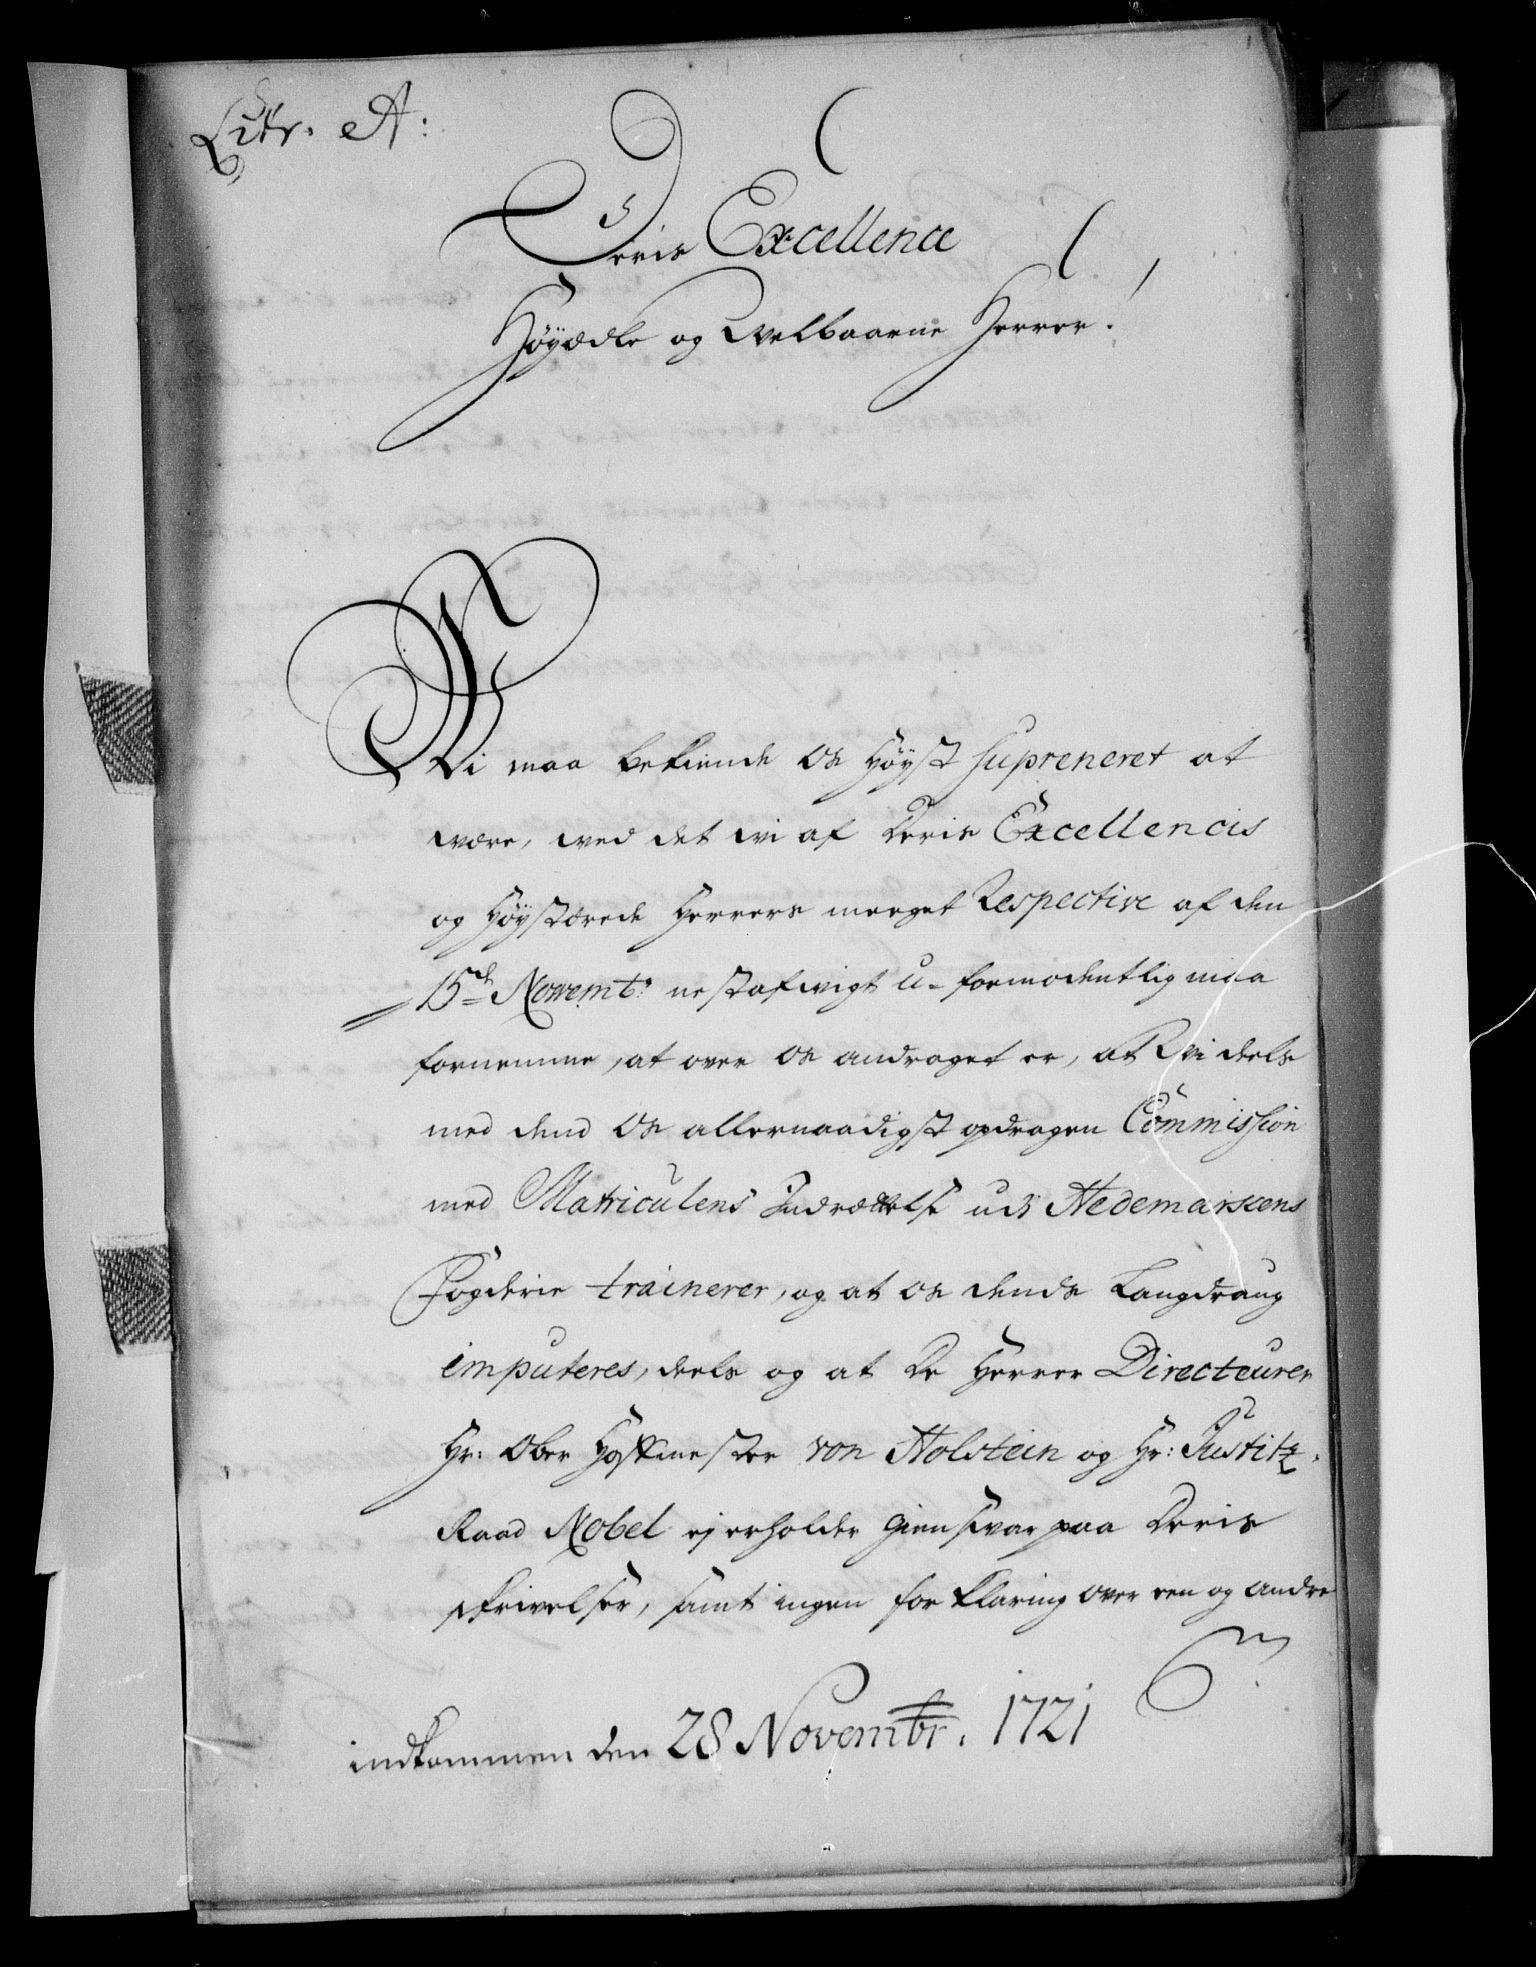 Litr. A:
Deris Excellence
Høyædle og Velbaarne Herrer!
Vi maa bekiende os Høyst supreneret at
være, ved det vi af Deris Excellencis
og Høystærede Herrers meeget Respective af den
15de Novemb: nestafvigt u-formodentlig maa
fornemme, at over os andraget er, at Vi deels
med dend os allernaadigst opdragen Commission
med Matriculens Indrættelse udi Hedemarkens
Fogderie trainerer, og at os dends Langdraug
imputeres, deels og at De Herrer Directeurer
Hr: Ober Hoffmester von Holstein og Hr: Justitz
Raad Nobel ej erholder giensvar paa Deris
skrivelser, samt ingen forklaring over een og andre
indkommen den 28 Novembr. 1721